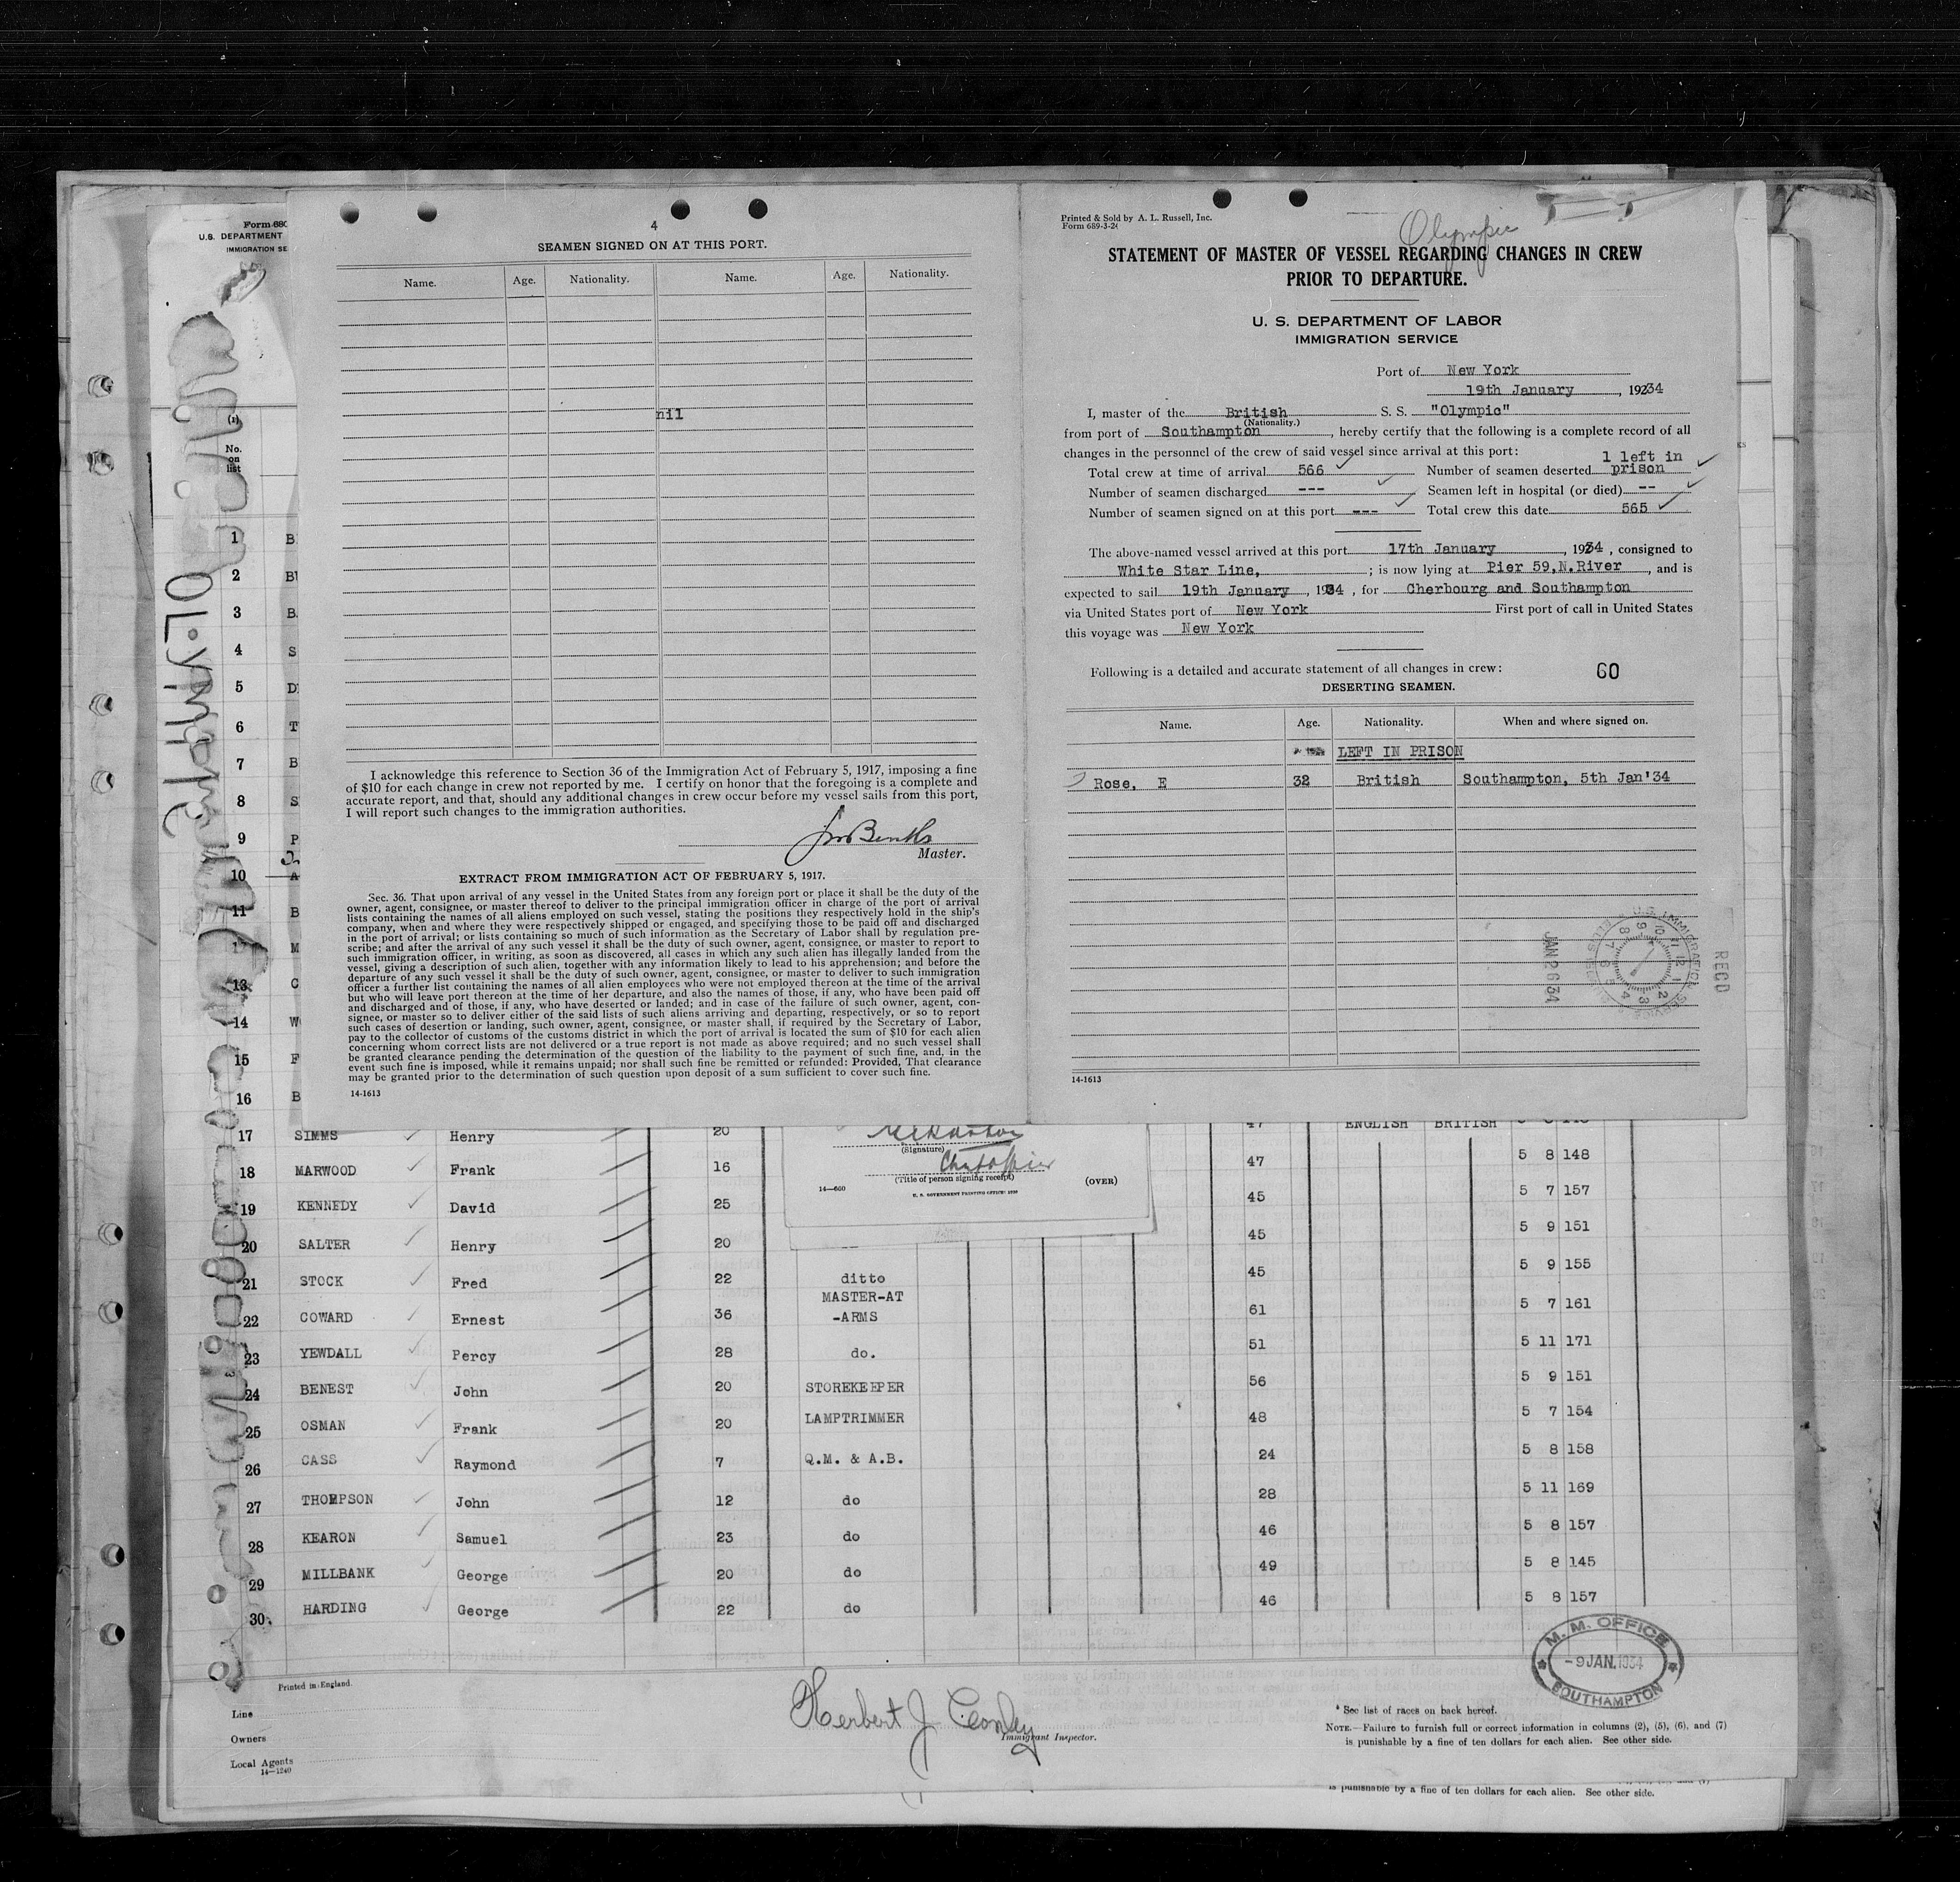 Form 680
U.S. DEPARTMENT
IMMIGRATION SE
(1)
No.
on
list
OLYMPIC
4
SEAMEN SIGNED ON AT THIS PORT.
Name. Age. Nationality. Name. Age. Nationality.
nil
I acknowledge this reference to Section 36 of the Immigration Act of February 5, 1917, imposing a fine
of $10 for each change in crew not reported by me. I certify on honor that the foregoing is a complete and
accurate report, and that, should any additional changes in crew occur before my vessel sails from this port,
I will report such changes to the immigration authorities.
Master.
EXTRACT FROM IMMIGRATION ACT OF FEBRUARY 5, 1917.
Sec. 36. That upon arrival of any vessel in the United States from any foreign port or place it shall be the duty of the
owner, agent, consignee, or master thereof to deliver to the principal immigration officer in charge of the port of arrival
lists containing the names of all aliens employed on such vessel, stating the positions they respectively hold in the ship's
company, when and where they were respectively shipped or engaged, and specifying those to be paid off and discharged
in the port of arrival; or lists containing so much of such information as the Secretary of Labor shall by regulation pre-
scribe; and after the arrival of any such vessel it shall be the duty of such owner, agent, consignee, or master to report to
such immigration officer, in writing, as soon as discovered, all cases in which any such alien has illegally landed from the
vessel, giving a description of such alien, together with any information likely to lead to his apprehension; and before the
departure of any such vessel it shall be the duty of such owner, agent, consignee, or master to deliver to such immigration
officer a further list containing the names of all alien employees who were not employed thereon at the time of the arrival
but who will leave port thereon at the time of her departure, and also the names of those, if any, who have been paid off
and discharged and of those, if any, who have deserted or landed; and in case of the failure of such owner, agent, con-
signee, or master so to deliver either of the said lists of such aliens arriving and departing, respectively, or so to report
such cases of desertion or landing, such owner, agent, consignee, or master shall, if required by the Secretary of Labor,
pay to the collector of customs of the customs district in which the port of arrival is located the sum of $10 for each alien
concerning whom correct lists are not delivered or a true report is not made as above required; and no such vessel shall
be granted clearance pending the determination of the question of the liability to the payment of such fine, and, in the
event such fine is imposed, while it remains unpaid; nor shall such fine be remitted or refunded: Provided, That clearance
may be granted prior to the determination of such question upon deposit of a sum sufficient to cover such fine.
14-1613
Printed & Sold by A. L. Russell, Inc.
Form 689-3-24
Olympic
STATEMENT OF MASTER OF VESSEL REGARDING CHANGES IN CREW
PRIOR TO DEPARTURE.
U. S. DEPARTMENT OF LABOR
IMMIGRATION SERVICE
Port of New York
19th January, 19234
I, master of the British S. S. "Olympic"
(Nationality.)
from port of Southampton, hereby certify that the following is a complete record of all
changes in the personnel of the crew of said vessel since arrival at this port:
Total crew at time of arrival 566 Number of seamen deserted 1 left in prison
Number of seamen discharged --- Seamen left in hospital (or died) --
Number of seamen signed on at this port --- Total crew this date 565
The above-named vessel arrived at this port 17th January, 1934, consigned to
White Star Line, ; is now lying at Pier 59,N.River, and is
expected to sail 19th January, 1934, for Cherbourg and Southampton
via United States port of New York First port of call in United States
this voyage was New York
Following is a detailed and accurate statement of all changes in crew: 60
DESERTING SEAMEN.
Name. Age. Nationality. When and where signed on.
LEFT IN PRISON
Rose, E 32 British Southampton, 5th Jan'34
U.S. IMMIGRATION SERVICE
JAN 26 34
RECD
14-1613
1 B
2 BU
3 B
4 S
5 D
6 T
7 B
8 S
9 P
10 A
11 B
12 M
13 C
14 W
15 F
16 B
17 SIMMS Henry 20 47 ENGLISH BRITISH
18 MARWOOD Frank 16 47 5 8 148
19 KENNEDY David 25 45 5 7 157
20 SALTER Henry 20 45 5 9 151
21 STOCK Fred 22 ditto 45 5 9 155
22 COWARD Ernest 36 MASTER-AT-ARMS 61 5 7 161
23 YEWDALL Percy 28 do. 51 5 11 171
24 BENEST John 20 STOREKEEPER 56 5 9 151
25 OSMAN Frank 20 LAMPTRIMMER 48 5 7 154
26 CASS Raymond 7 Q.M. & A.B. 24 5 8 158
27 THOMPSON John 12 do 28 5 11 169
28 KEARON Samuel 23 do 46 5 8 157
29 MILLBANK George 20 do 49 5 8 145
30 HARDING George 22 do 46 5 8 157
(Signature)
(Title of person signing receipt)
14-600
(OVER)
M.M. OFFICE
-9 JAN. 1934
SOUTHAMPTON
Printed in England.
Line
Owners
Local Agents
14-1240
Herbert J. Conley
Immigrant Inspector.
* See list of races on back hereof.
NOTE.—Failure to furnish full or correct information in columns (2), (5), (6), and (7)
is punishable by a fine of ten dollars for each alien. See other side.
is punishable by a fine of ten dollars for each alien. See other side.